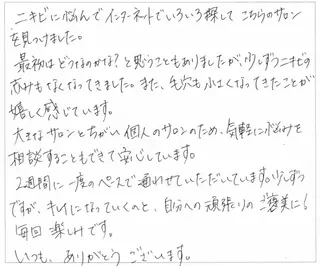 ニキビに悩んでインターネットでいろいろ探して こちらのサロン
を見つけました。
最初はどうなのかな？と思うこともありましたが、少しずつニキビの
赤みもなくなってきました。また、毛穴も小さくなってきたことが
嬉しく感じています。
大きなサロンとちがい 個人のサロンのため、気軽に悩みを
相談することもできて安心しています。
2週間に一度のペースで通わせていただいています。少しずつ
ですが、キレイになっていくのと、自分への頑張りのご褒美に！
毎回 楽しみです。
いつも、ありがとう ございます。